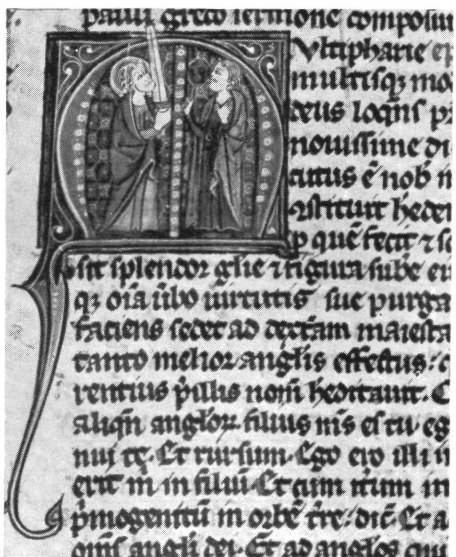 pauli greco sermone composuit
Vltipharie
multisqz mo
deus loqñs p
nouissime di
cutus ē nob
9stituit hede
p quē fecit ⁊ s
sit splendor glie ⁊ figura sube ei
qz oīa ūbo uirtutis sue purga
faciens sedet ad dextam maiesta
tanto melior anglis effectus
rentius p̄ illis nom̄ heditauit. C
aliqñ anglor filius m̄s es tu eg
nui te. Et rursum. Ego ero illi
erit m̄ in filiū. Et cum itūm in
p̄mogenitū in orbē tre. dic̄ Et a
om̄s angli dei. Et ad anglos qui